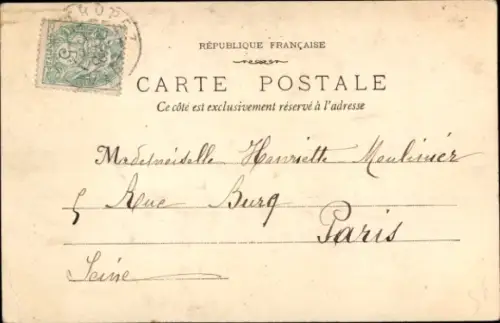 RÉPUBLIQUE FRANÇAISE
CARTE POSTALE
Ce côté est exclusivement réservé à l'adresse
Mademoiselle Henriette Moulinier
5 Rue Burq
Paris
Seine